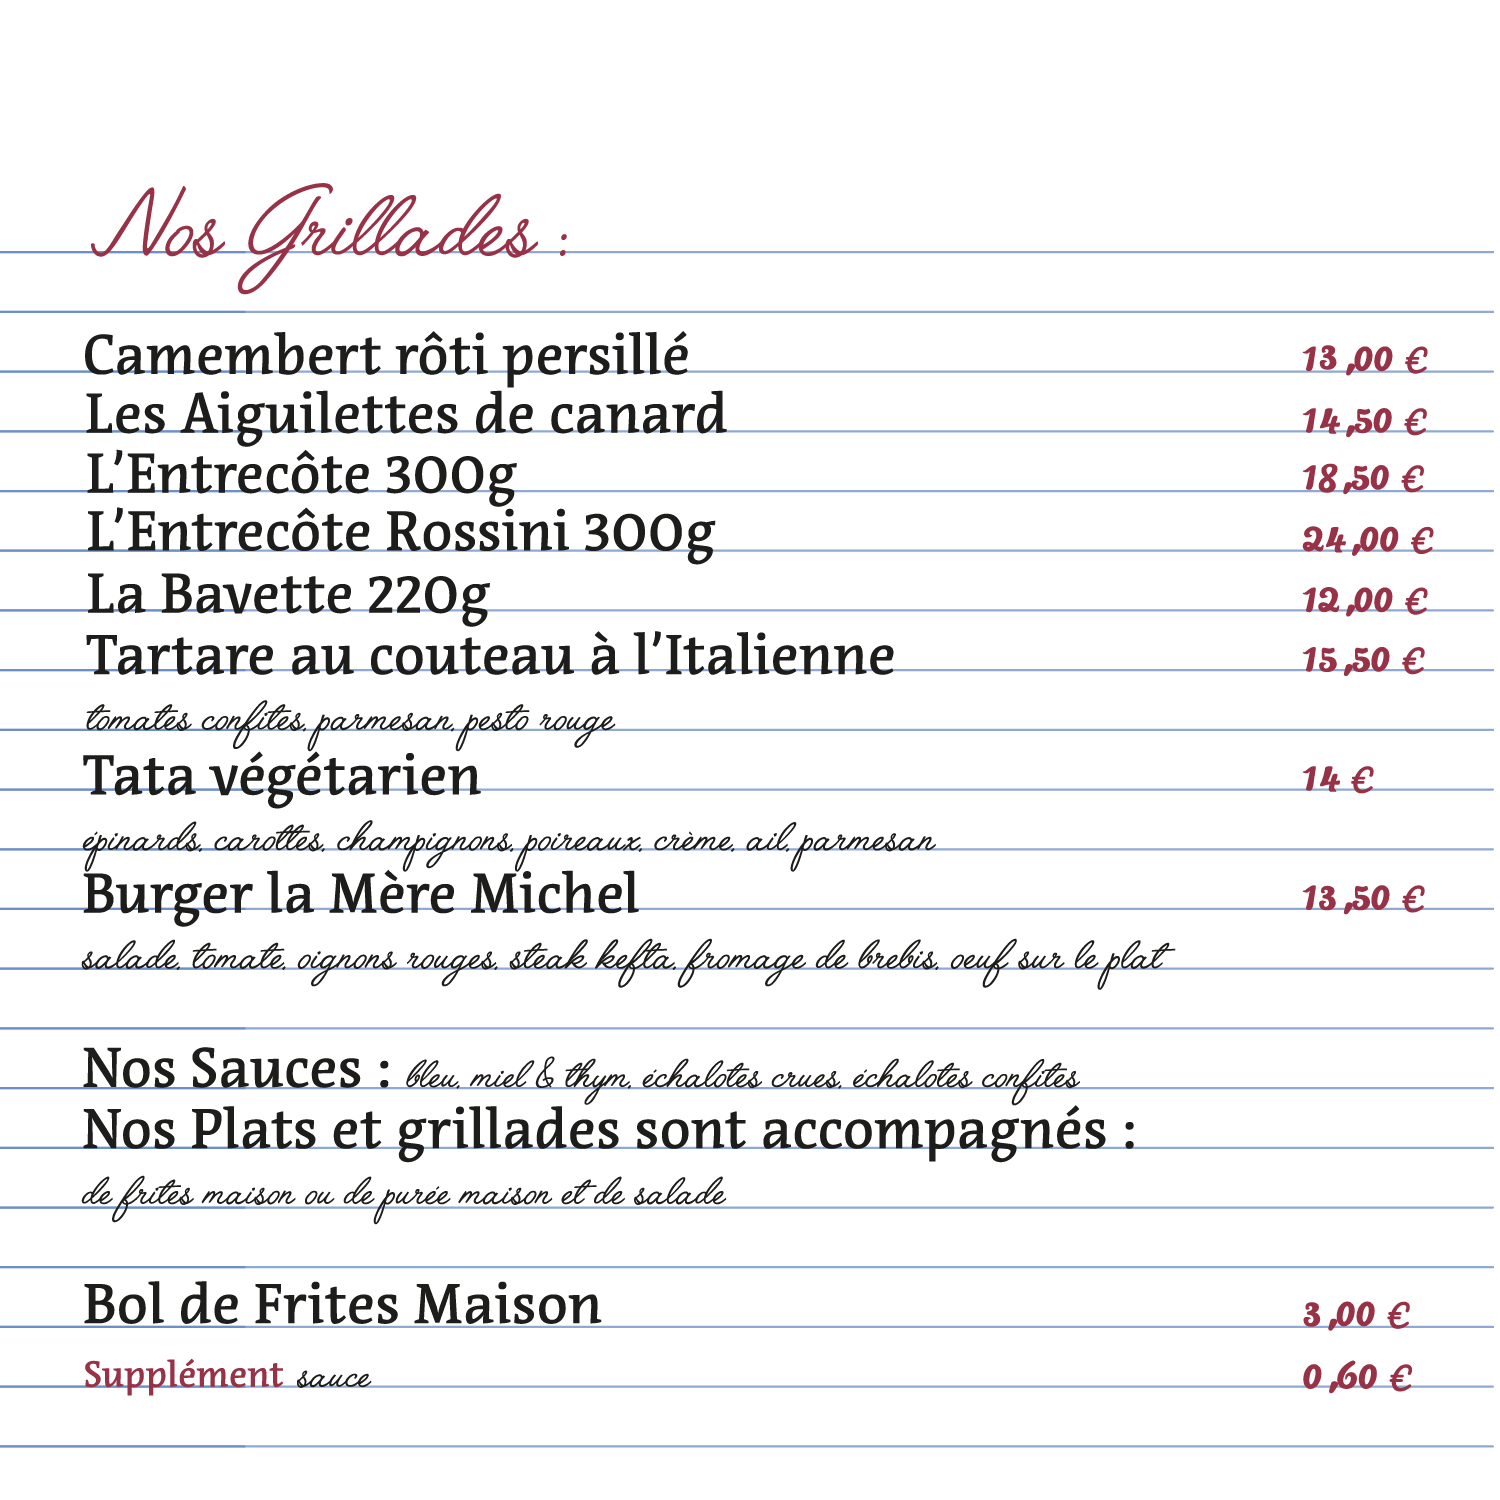 Nos Grillades :
Camembert rôti persillé 13,00 €
Les Aiguilettes de canard 14,50 €
L'Entrecôte 300g 18,50 €
L'Entrecôte Rossini 300g 24,00 €
La Bavette 220g 12,00 €
Tartare au couteau à l'Italienne 15,50 €
tomates confites, parmesan, pesto rouge
Tata végétarien 14 €
épinards, carottes, champignons, poireaux, crème, ail, parmesan
Burger la Mère Michel 13,50 €
salade, tomate, oignons rouges, steak kefta, fromage de brebis, oeuf sur le plat
Nos Sauces : bleu, miel & thym, échalotes crues, échalotes confites
Nos Plats et grillades sont accompagnés :
de frites maison ou de purée maison et de salade
Bol de Frites Maison 3,00 €
Supplément sauce 0,60 €